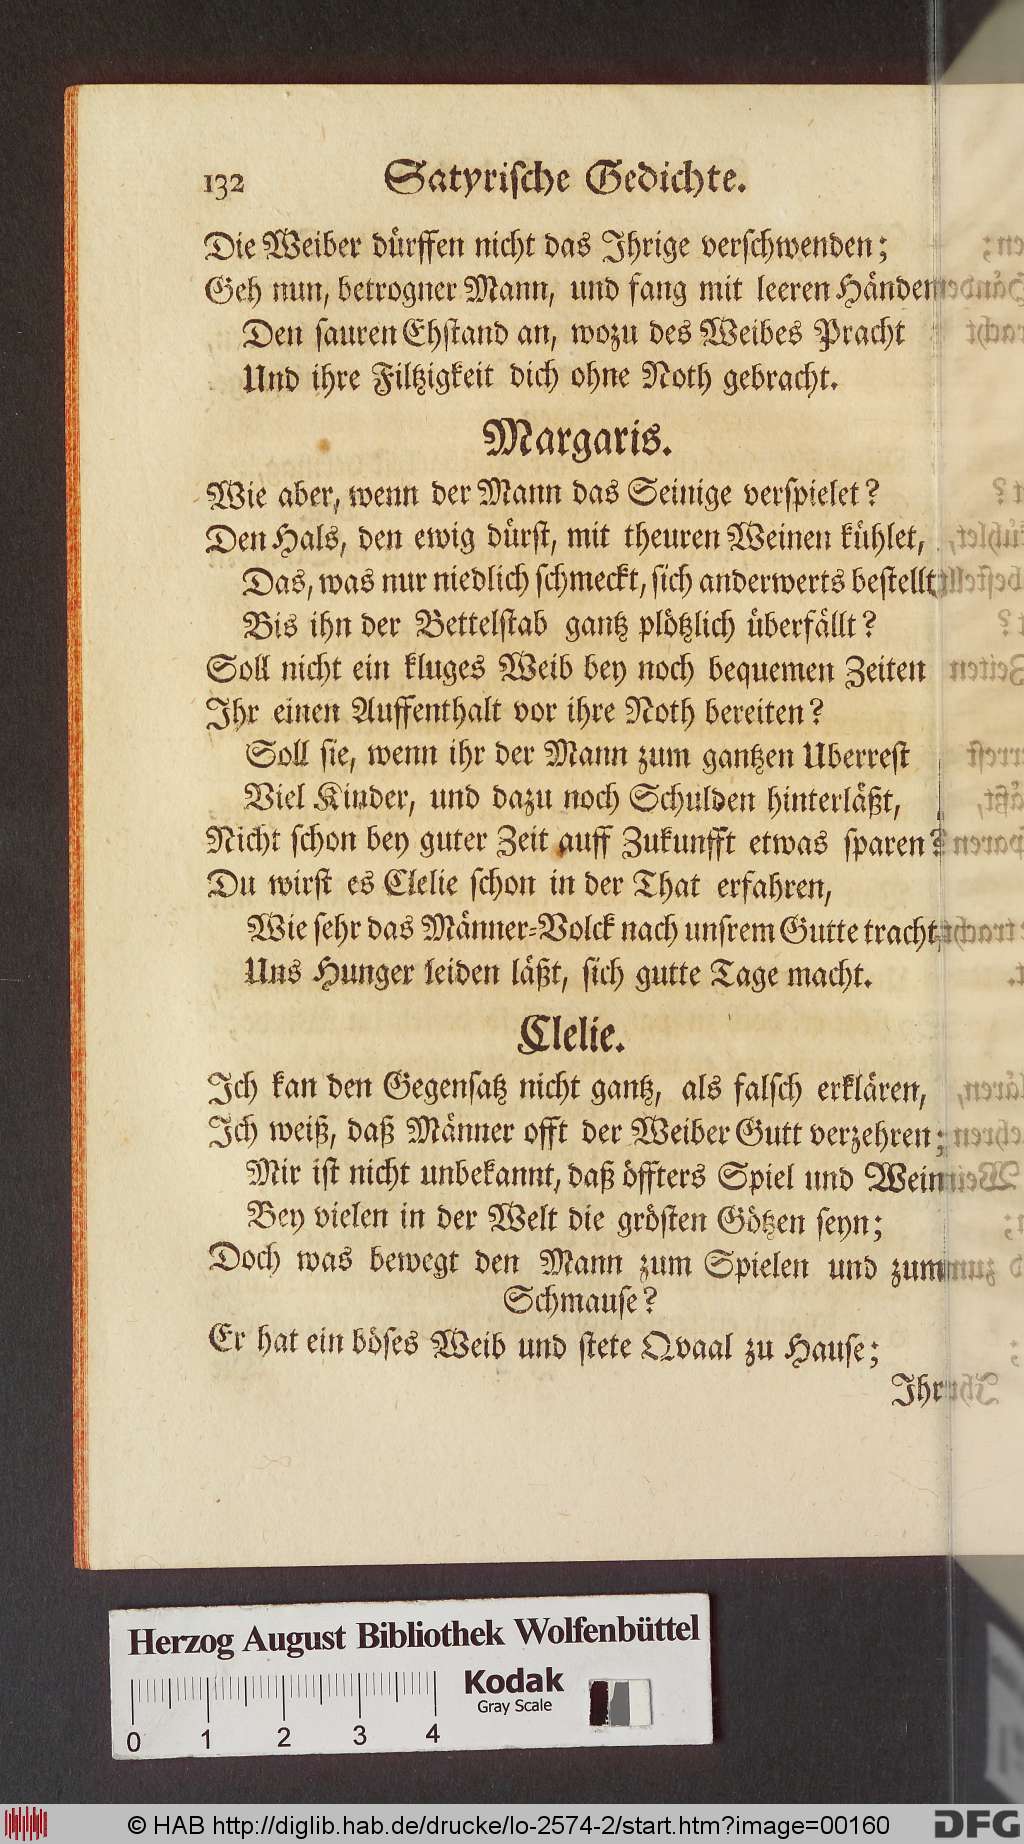 132 Satyrische Gedichte.
Die Weiber dürffen nicht das Ihrige verschwenden;
Geh nun, betrogner Mann, und fang mit leeren Händen
Den sauren Ehstand an, wozu des Weibes Pracht
Und ihre Filtzigkeit dich ohne Noth gebracht.
Margaris.
Wie aber, wenn der Mann das Seinige verspielet?
Den Hals, den ewig dürst, mit theuren Weinen kühlet,
Das, was nur niedlich schmeckt, sich anderwerts bestellt
Bis ihn der Bettelstab gantz plötzlich überfällt?
Soll nicht ein kluges Weib bey noch bequemen Zeiten
Ihr einen Auffenthalt vor ihre Noth bereiten?
Soll sie, wenn ihr der Mann zum gantzen Uberrest
Viel Kinder, und dazu noch Schulden hinterläßt,
Nicht schon bey guter Zeit auff Zukunfft etwas sparen?
Du wirst es Clelie schon in der That erfahren,
Wie sehr das Männer=Volck nach unsrem Gutte tracht,
Uns Hunger leiden läßt, sich gutte Tage macht.
Clelie.
Ich kan den Gegensatz nicht gantz, als falsch erklären,
Ich weiß, daß Männer offt der Weiber Gutt verzehren;
Mir ist nicht unbekannt, daß öffters Spiel und Wein
Bey vielen in der Welt die grösten Götzen seyn;
Doch was bewegt den Mann zum Spielen und zum
Schmause?
Er hat ein böses Weib und stete Qvaal zu Hause;
Ihr
Herzog August Bibliothek Wolfenbüttel
Kodak
Gray Scale
0 1 2 3 4
© HAB http://diglib.hab.de/drucke/lo-2574-2/start.htm?image=00160
DFG